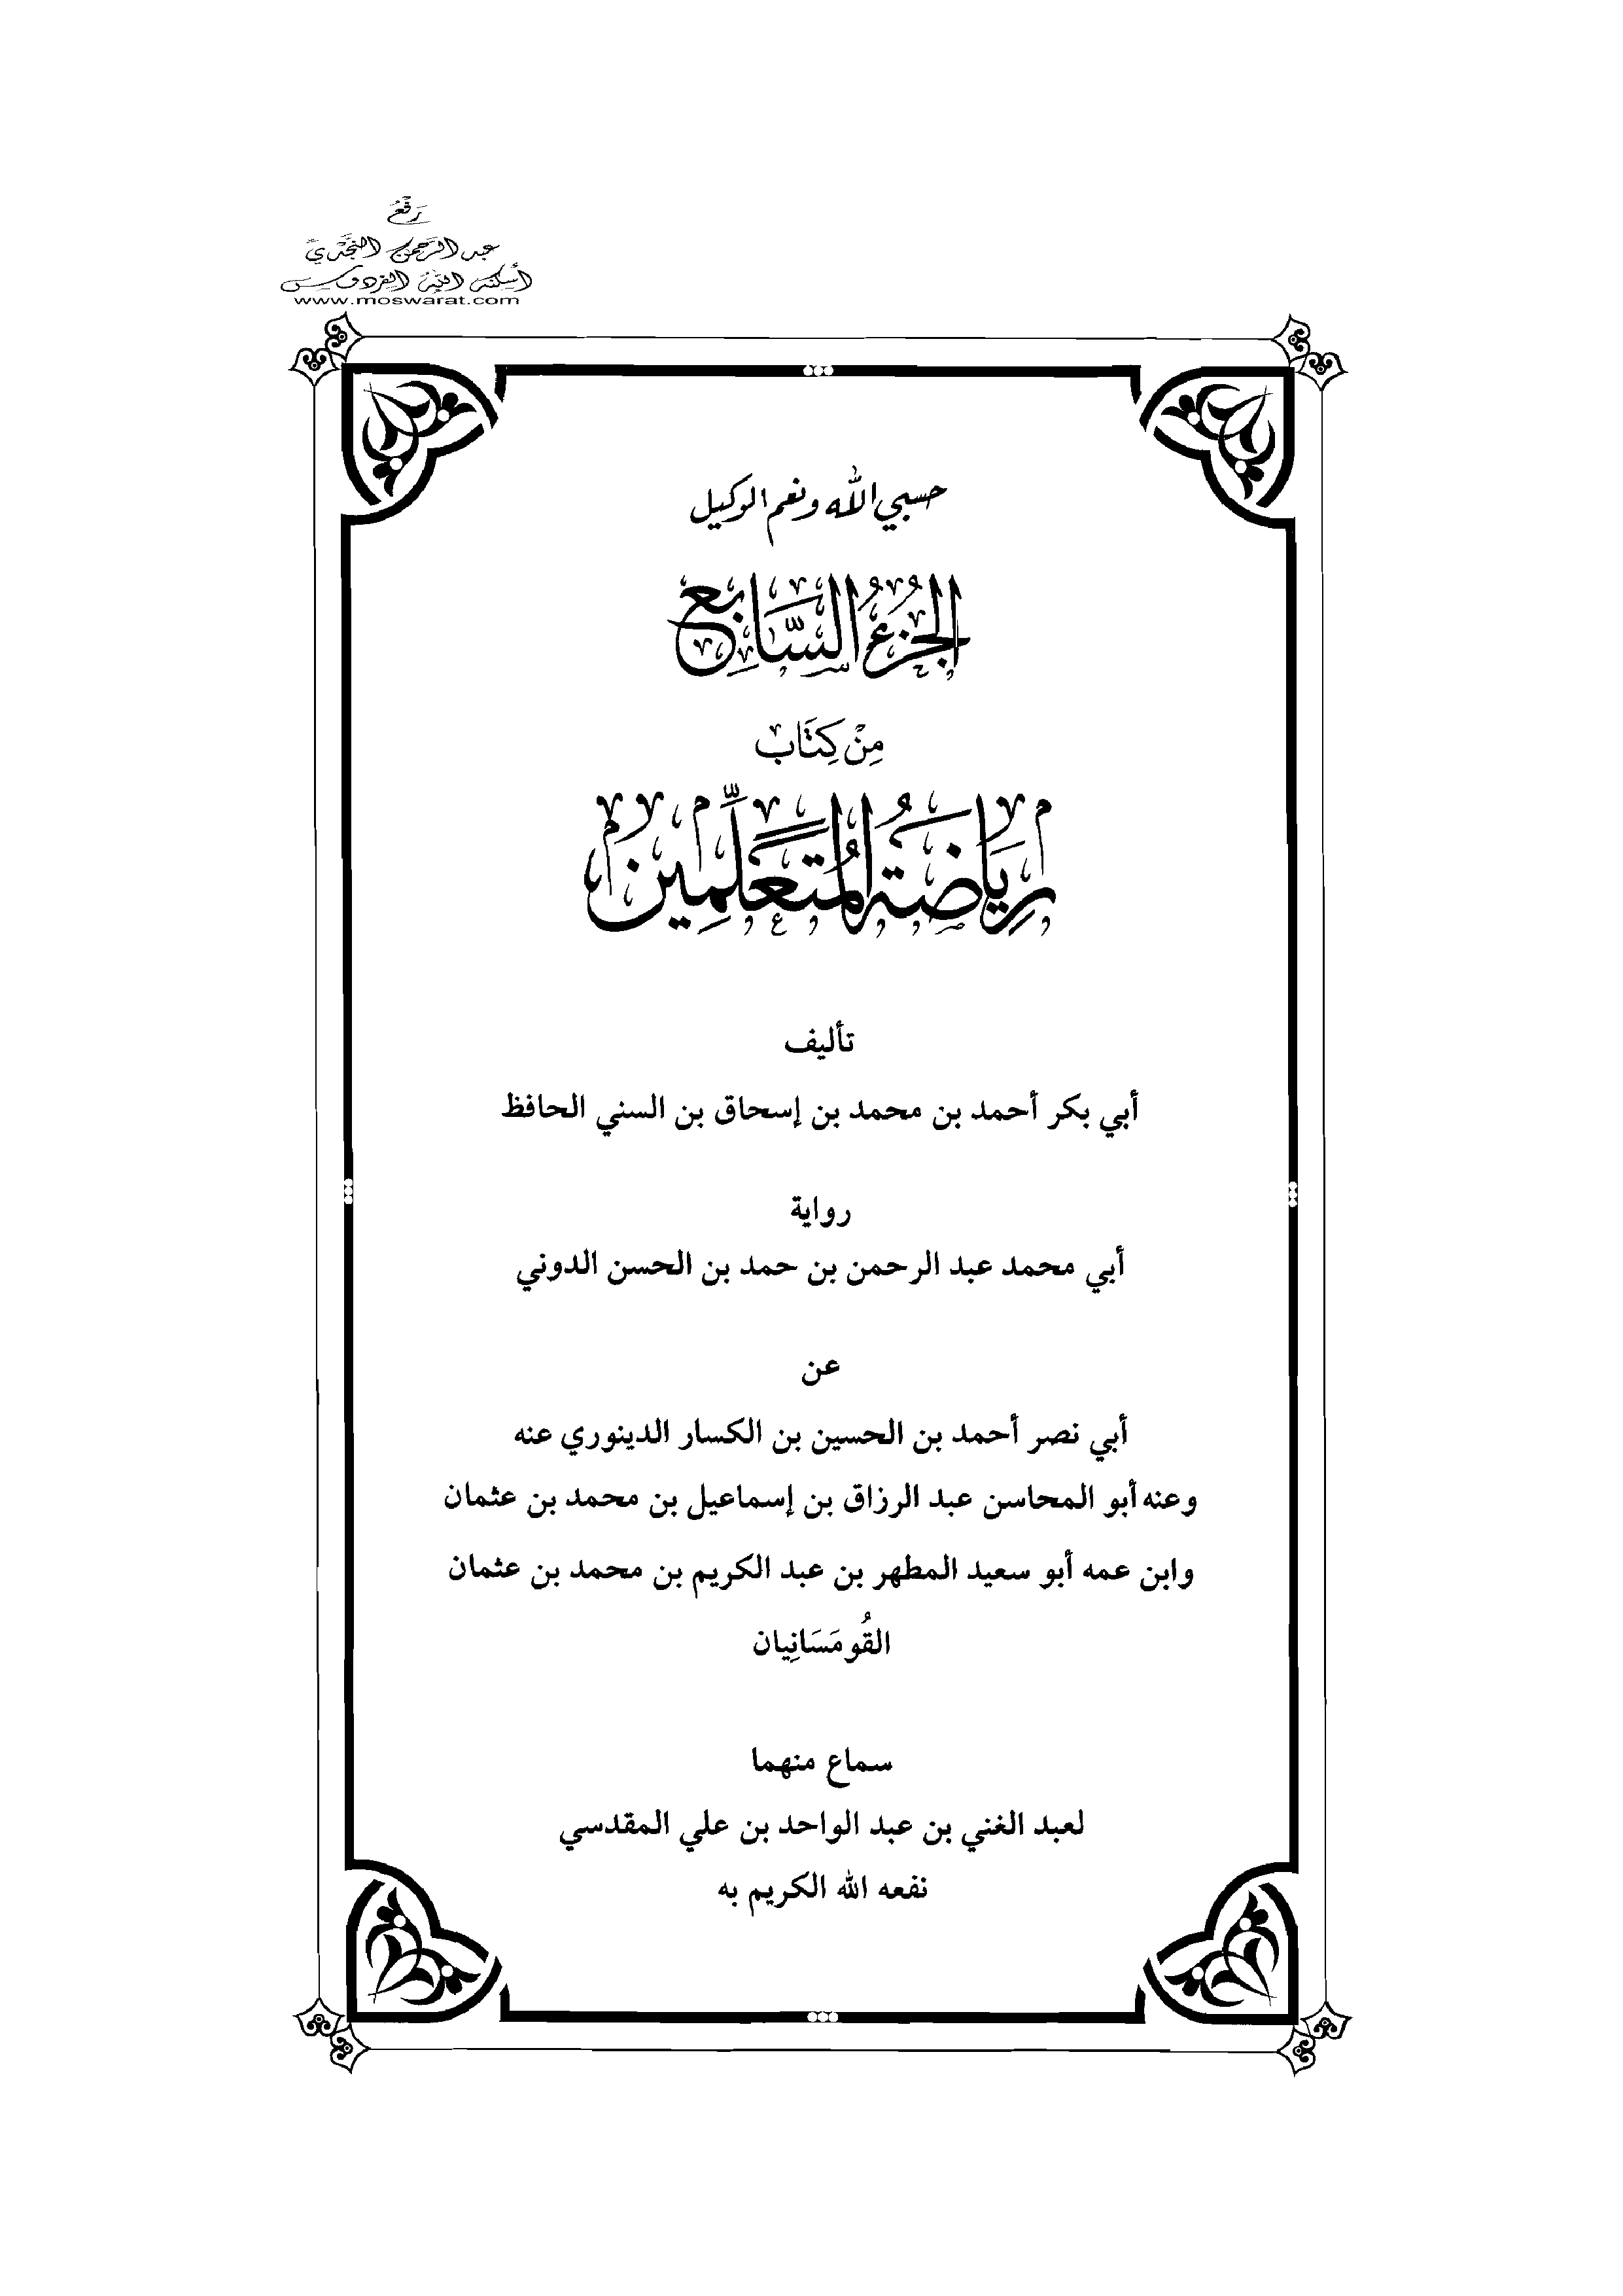 رَفْعُ
عبد الرَّحمن النَّجْدِيّ
أسكنه اللهُ الفردوس
www.moswarat.com
حسبي الله ونعم الوكيل
الجُزءُ السَّابِع
مِنْ كِتَاب
رِيَاضَةُ المُتَعَلِّمِين
تأليف
أبي بكر أحمد بن محمد بن إسحاق بن السني الحافظ
رواية
أبي محمد عبد الرحمن بن حمد بن الحسن الدوني
عن
أبي نصر أحمد بن الحسين بن الكسار الدينوري عنه
وعنه أبو المحاسن عبد الرزاق بن إسماعيل بن محمد بن عثمان
وابن عمه أبو سعيد المطهر بن عبد الكريم بن محمد بن عثمان
القُومَسَانِيان
سماع منهما
لعبد الغني بن عبد الواحد بن علي المقدسي
نفعه الله الكريم به